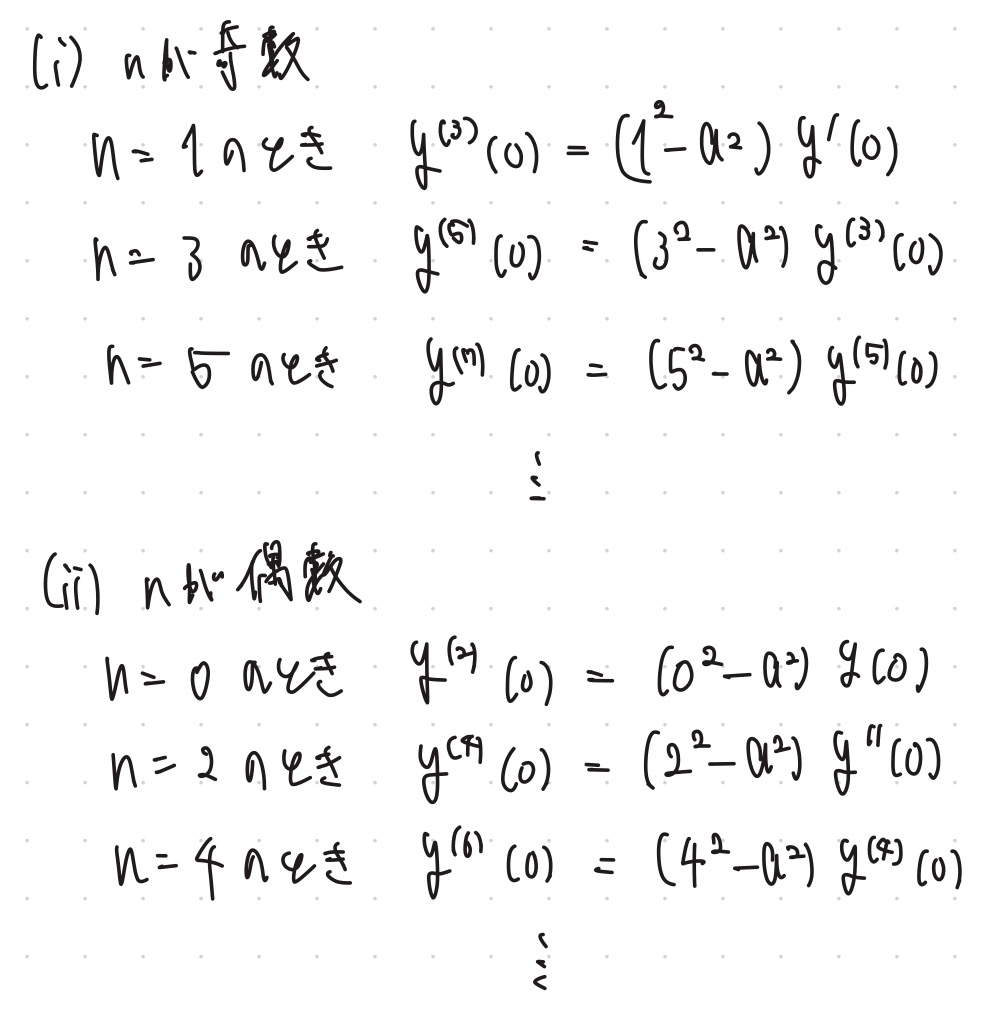 (i) nが奇数
n = 1 のとき y⁽³⁾(0) = (1² - a²) y′(0)
n = 3 のとき y⁽⁵⁾(0) = (3² - a²) y⁽³⁾(0)
n = 5 のとき y⁽⁷⁾(0) = (5² - a²) y⁽⁵⁾(0)
⋮
(ii) nが偶数
n = 0 のとき y⁽²⁾(0) = (0² - a²) y(0)
n = 2 のとき y⁽⁴⁾(0) = (2² - a²) y″(0)
n = 4 のとき y⁽⁶⁾(0) = (4² - a²) y⁽⁴⁾(0)
⋮